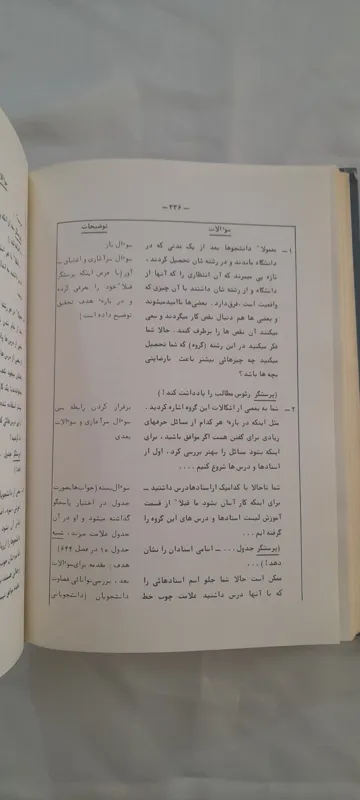 - ۲۲۶ -
سوءالات
توضیحات
۱ - معمولا" دانشجوها بعد از یک مدتی که در
دانشگاه ماندند و در رشته شان تحصیل کردند ،
تازه پی میبرند که آن انتظاری را که آنها از
دانشگاه و از رشته شان داشتند با آن چیزی که
واقعیت است ، فرق دارد . بعضی‌ها ناامید میشوند
بعضی‌ها هم دنبال نقص کار میگردند و سعی
میکنند آن نقص ها را برطرف کنند . حالا شما
فکر میکنید در این رشته (گروه) که شما تحصیل
میکنید چه چیزهائی بیشتر باعث نارضایتی
بچه ها باشد ؟
(پرسشگر رئوس مطالب را یادداشت کند!)
۲ - شما به بعضی از اشکالات این گروه اشاره کردید .
مثل اینکه در باره ٔ هر کدام از مسائل حرفهای
زیادی برای گفتن هست اگر موافق باشید ، برای
اینکه بشود مسائل را بهتر بررسی کرد ، اول از
استادها و درس‌ها شروع کنیم ....
شما تا حالا با کدامیک از استادها درس داشتید -
برای اینکه کار آسان بشود ما قبلا" از قسمت
آموزش لیست استادها و درس های این گروه را
گرفته ایم ...
(پرسشگر جدول ... - اسامی استادان را نشان
دهد!) ...
ممکن است حالا شما جلو اسم استادهائی را
که با آنها درس داشتید علامت چوب خط
سوءال باز
سوءال سرآغازی و آشنای -
آور (با فرض اینکه پرسشگر
قبلا" خود را معرفی کرده
و در باره ٔ هدف تحقیق
توضیح داده است)
برقرار کردن رابطه بین
سوءال سرآغازی و سوءالات
بعدی
سوءال بسته (جواب‌ها بصورت
جدول در اختیار پاسخگو
گذاشته میشود و او در آن
جدول علامت میزند ، شبیه
جدول ۱۵ در فصل ۶۴۴)
هدف : مقدمه برای سوءالات
بعد ، بررسی توانائی قضاوت
دانشجویان (دانشجویانی